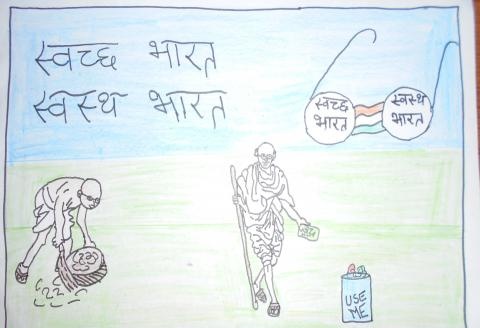 स्वच्छ भारत
स्वस्थ भारत
स्वच्छ
भारत
स्वस्थ
भारत
USE
ME